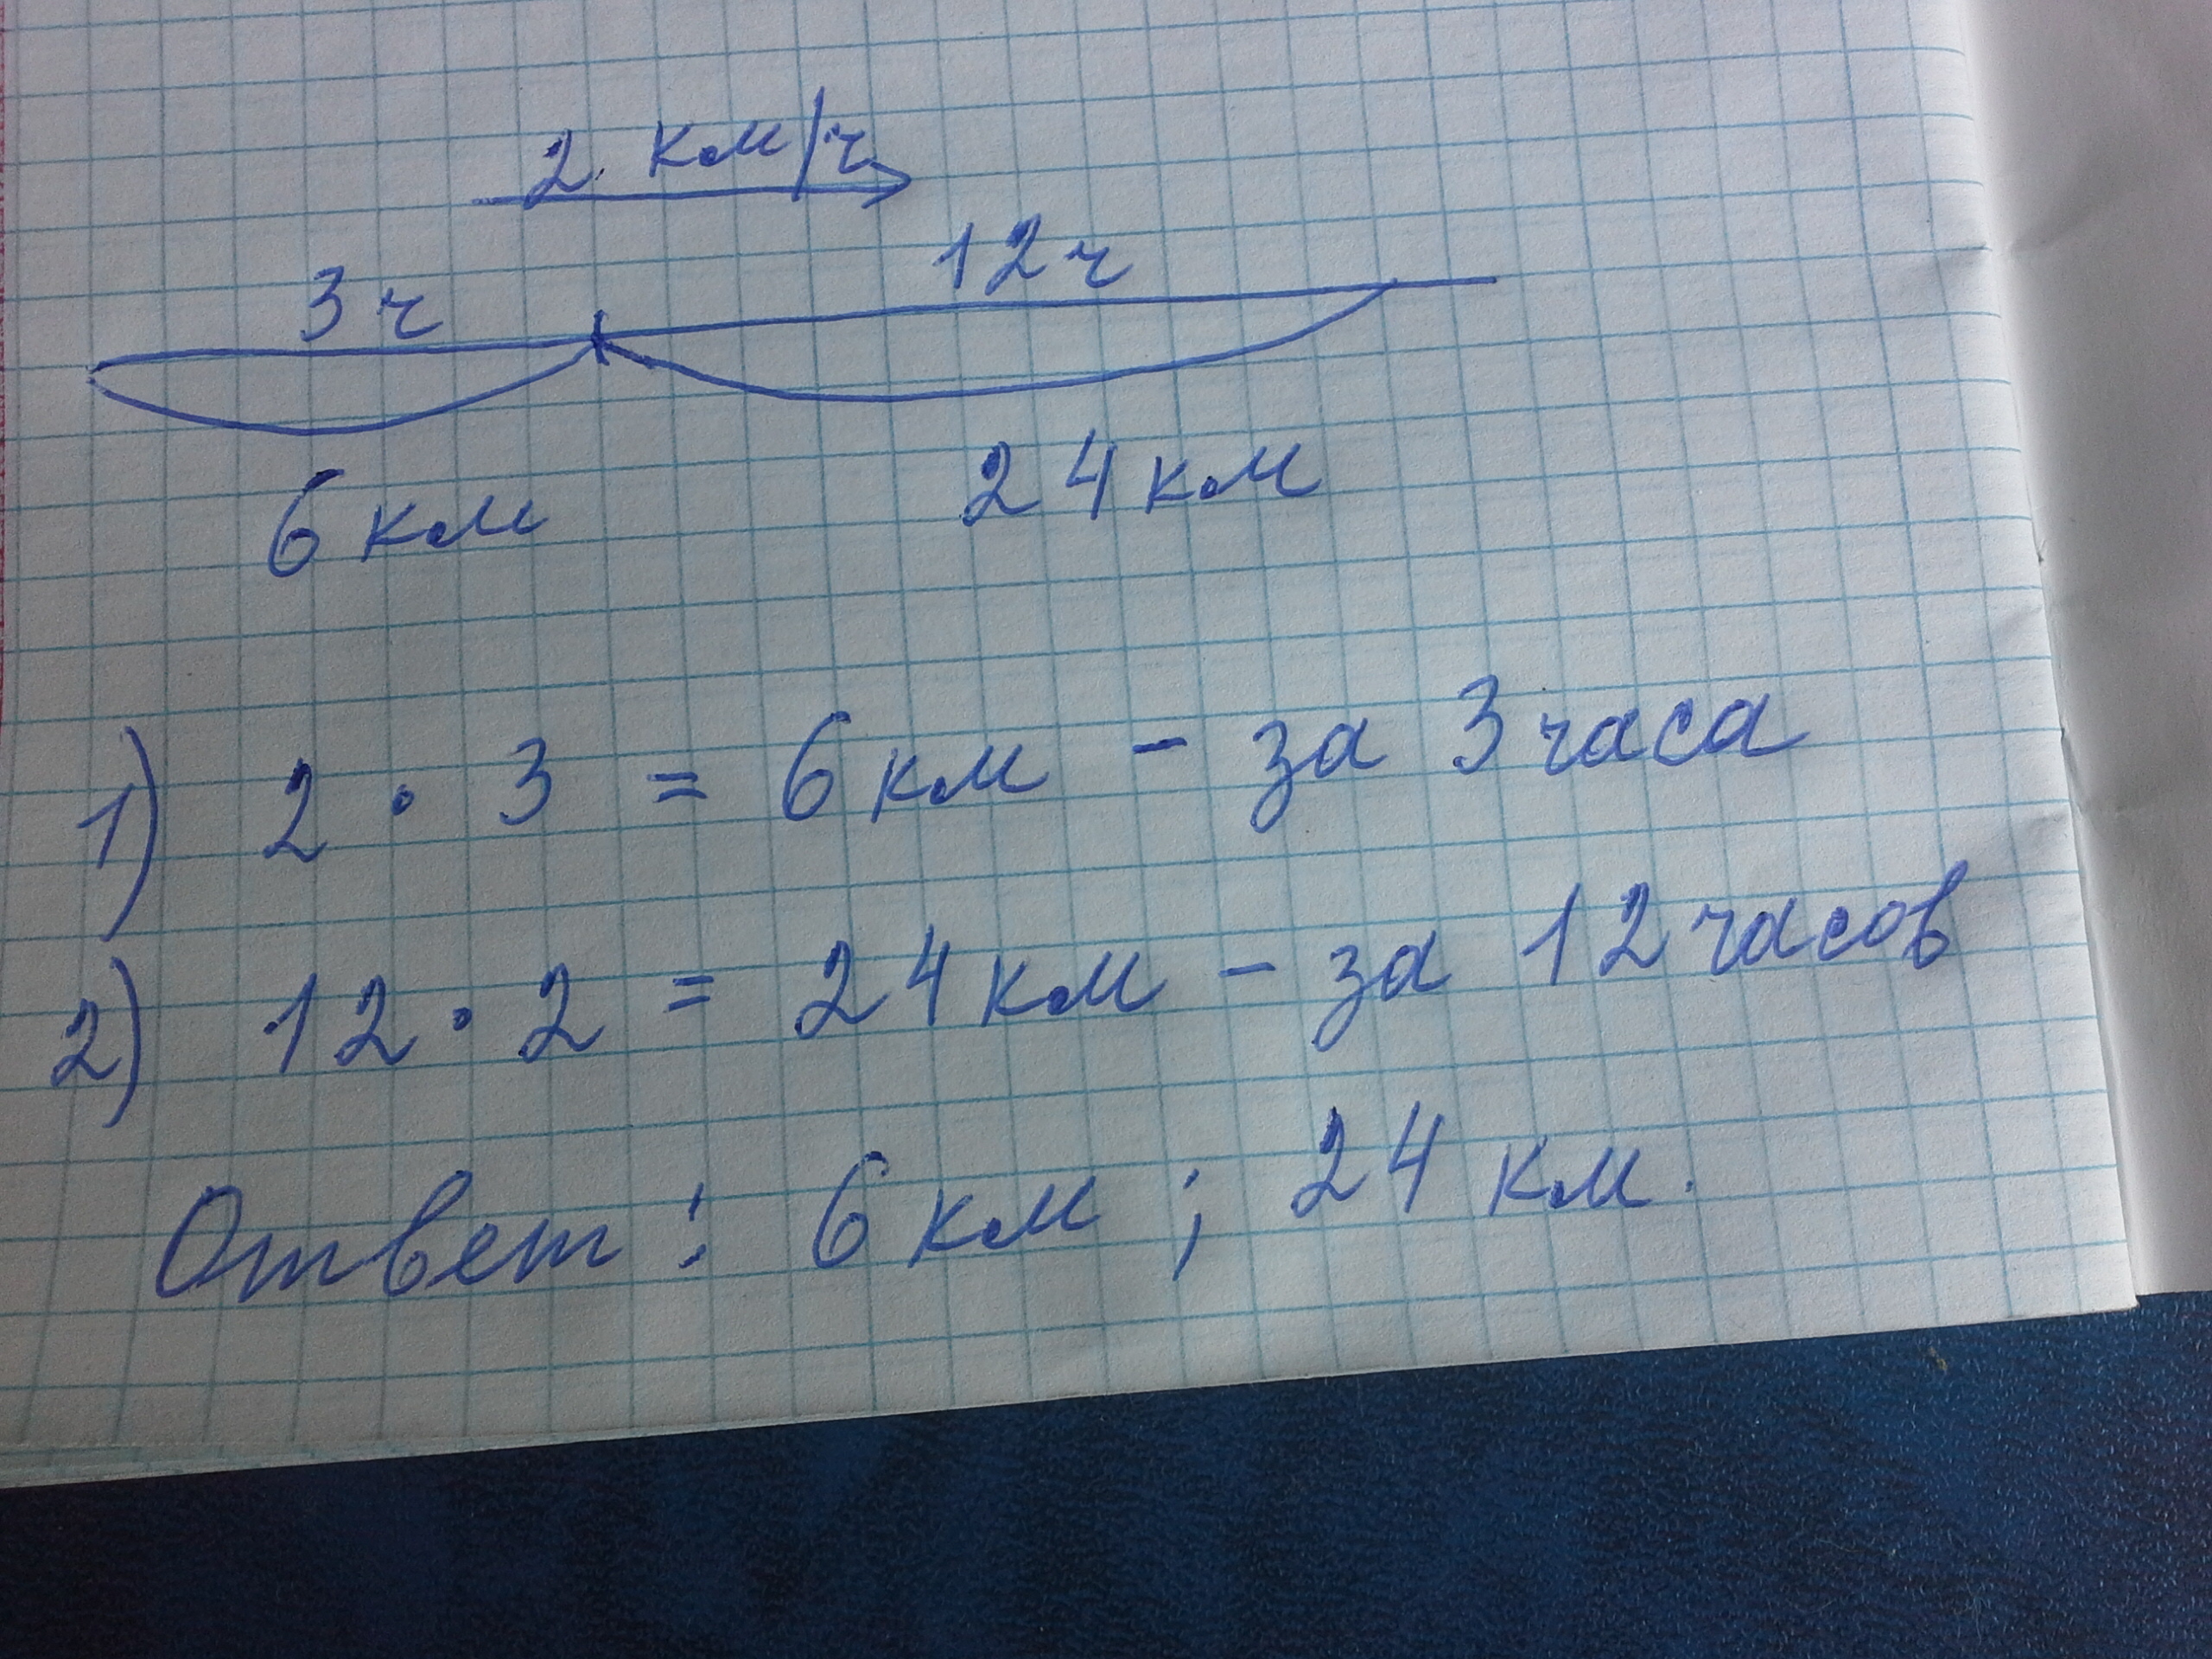 2 км/ч
3ч 12ч
6 км 24 км
1) 2 · 3 = 6 км - за 3 часа
2) 12 · 2 = 24 км - за 12 часов
Ответ: 6 км; 24 км.